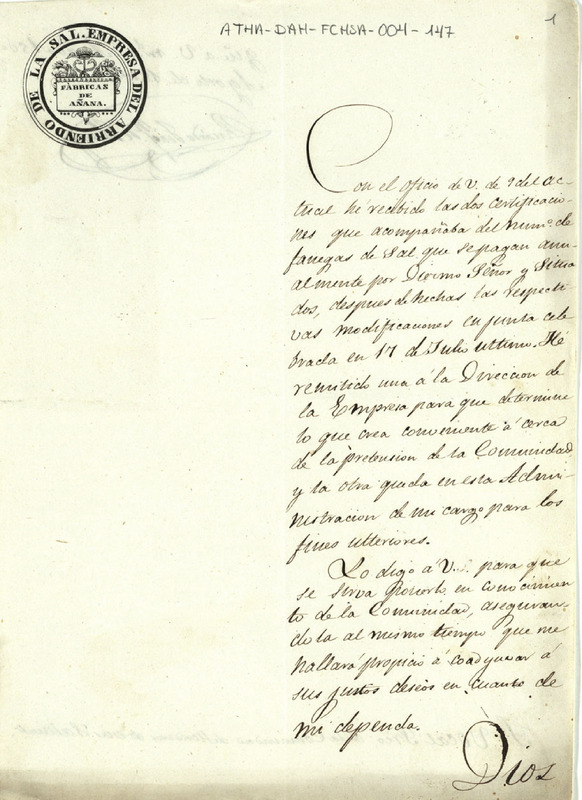 ATHA-DAH-FCHSA-004-147
1
LA SAL. EMPRESA DEL ARRIENDO DE
FÁBRICAS
DE
AÑANA.
Con el oficio de V. de 9 del ac-
tual hé recibido las dos certificacio-
nes que acompañaba del num.º de
fanegas de Sal que se pagan anu-
almente por Diezmo Señor y Situa
dos, despues de hechas las respecti-
vas modificaciones en junta cele
brada en 17 de Julio ultimo. Hé
remitido una á la Direccion de
la Empresa para que determine
lo que crea conveniente á cerca
de la pretension de la Comunidad
y la otra queda en esta Admi-
nistracion de mi cargo para los
fines ulteriores.
Lo digo á V. para que
se sirva ponerlo en conocimien
to de la Comunidad, aseguran-
dola al mismo tiempo que me
hallará propicio á coadyuvar á
sus justos deseos en cuanto de
mi dependa.
Dios